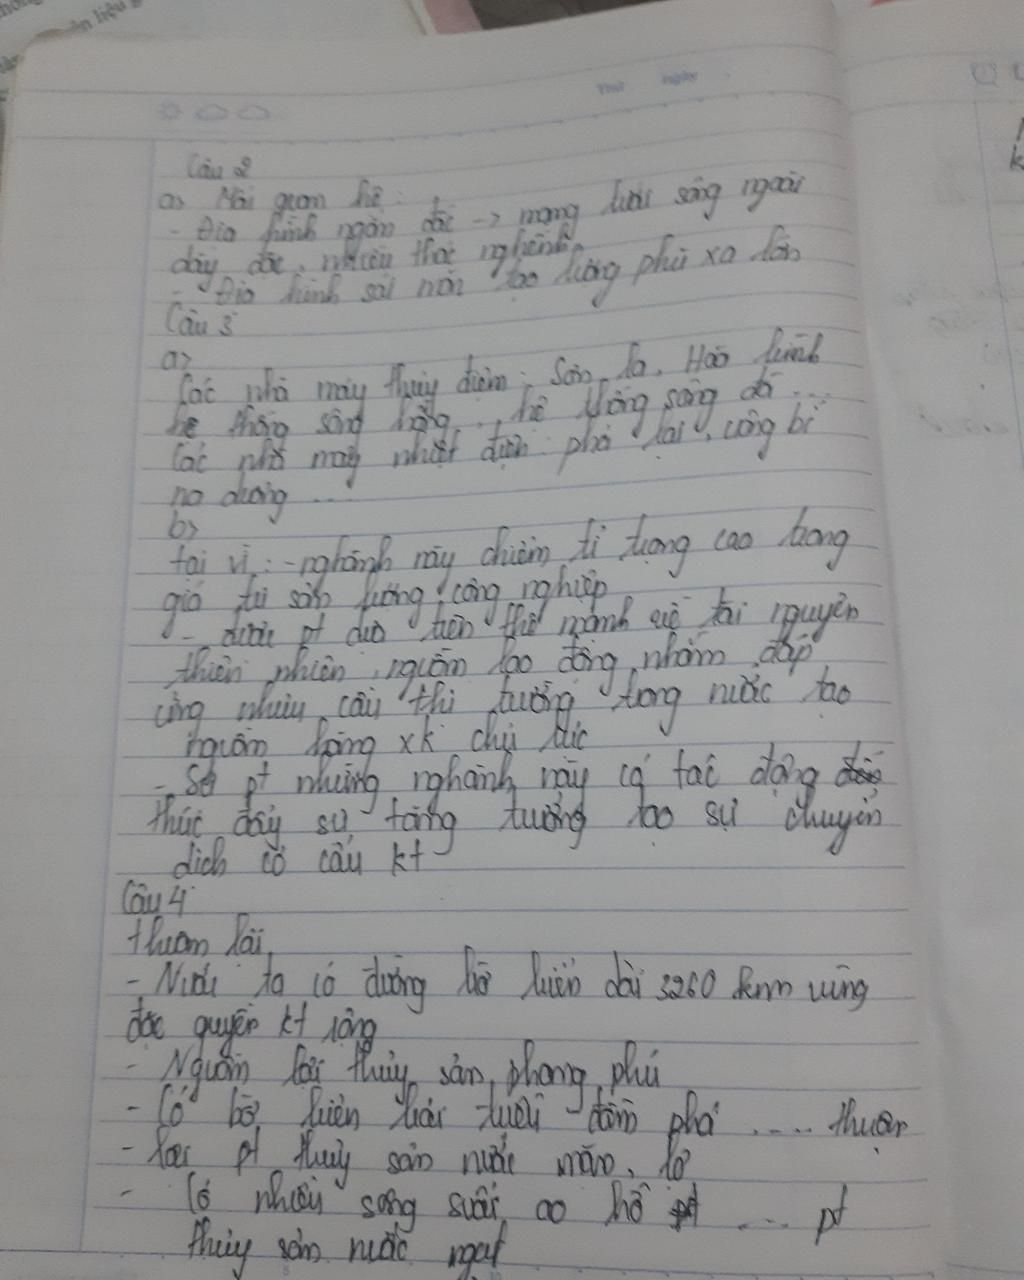 Thứ ngày
Câu 2
a) Mối quan hệ:
- Địa hình ngắn dốc -> mạng lưới sông ngòi
dày đặc, nhiều thác nghềnh
- Địa hình sói mòn tạo lượng phù xa lớn
Câu 3
a)
Các nhà máy thủy điện: Sơn la, Hoà bình
hệ thống sông hồng, hệ thống sông đà ...
Các nhà máy nhiệt điện: phả lại, uông bí
na dương ...
b)
tại vì: - nghành này chiếm tỉ trọng cao trong
giá trị sản lượng công nghiệp
- được pt dựa trên thế mạnh về tài nguyên
thiên nhiên, nguồn lao động nhằm đáp
ứng nhiu cầu thị trường trong nước tạo
nguồn hàng xk chủ lực
- Sự pt những nghành này có tác động
thúc đẩy sự tăng trưởng tạo sự chuyển
dịch cơ cấu kt
Câu 4
thuận lợi
- Nước ta có đường bờ biển dài 3260 km vùng
đặc quyền kt rộng
- Nguồn lợi thủy sản phong phú
- Có bờ biển bãi triều đầm phá .... thuận
- lợi pt thuỷ sản nước mặn, lợ
- Có nhiều sông suối ao hồ .... pt
thủy sản nước ngọt